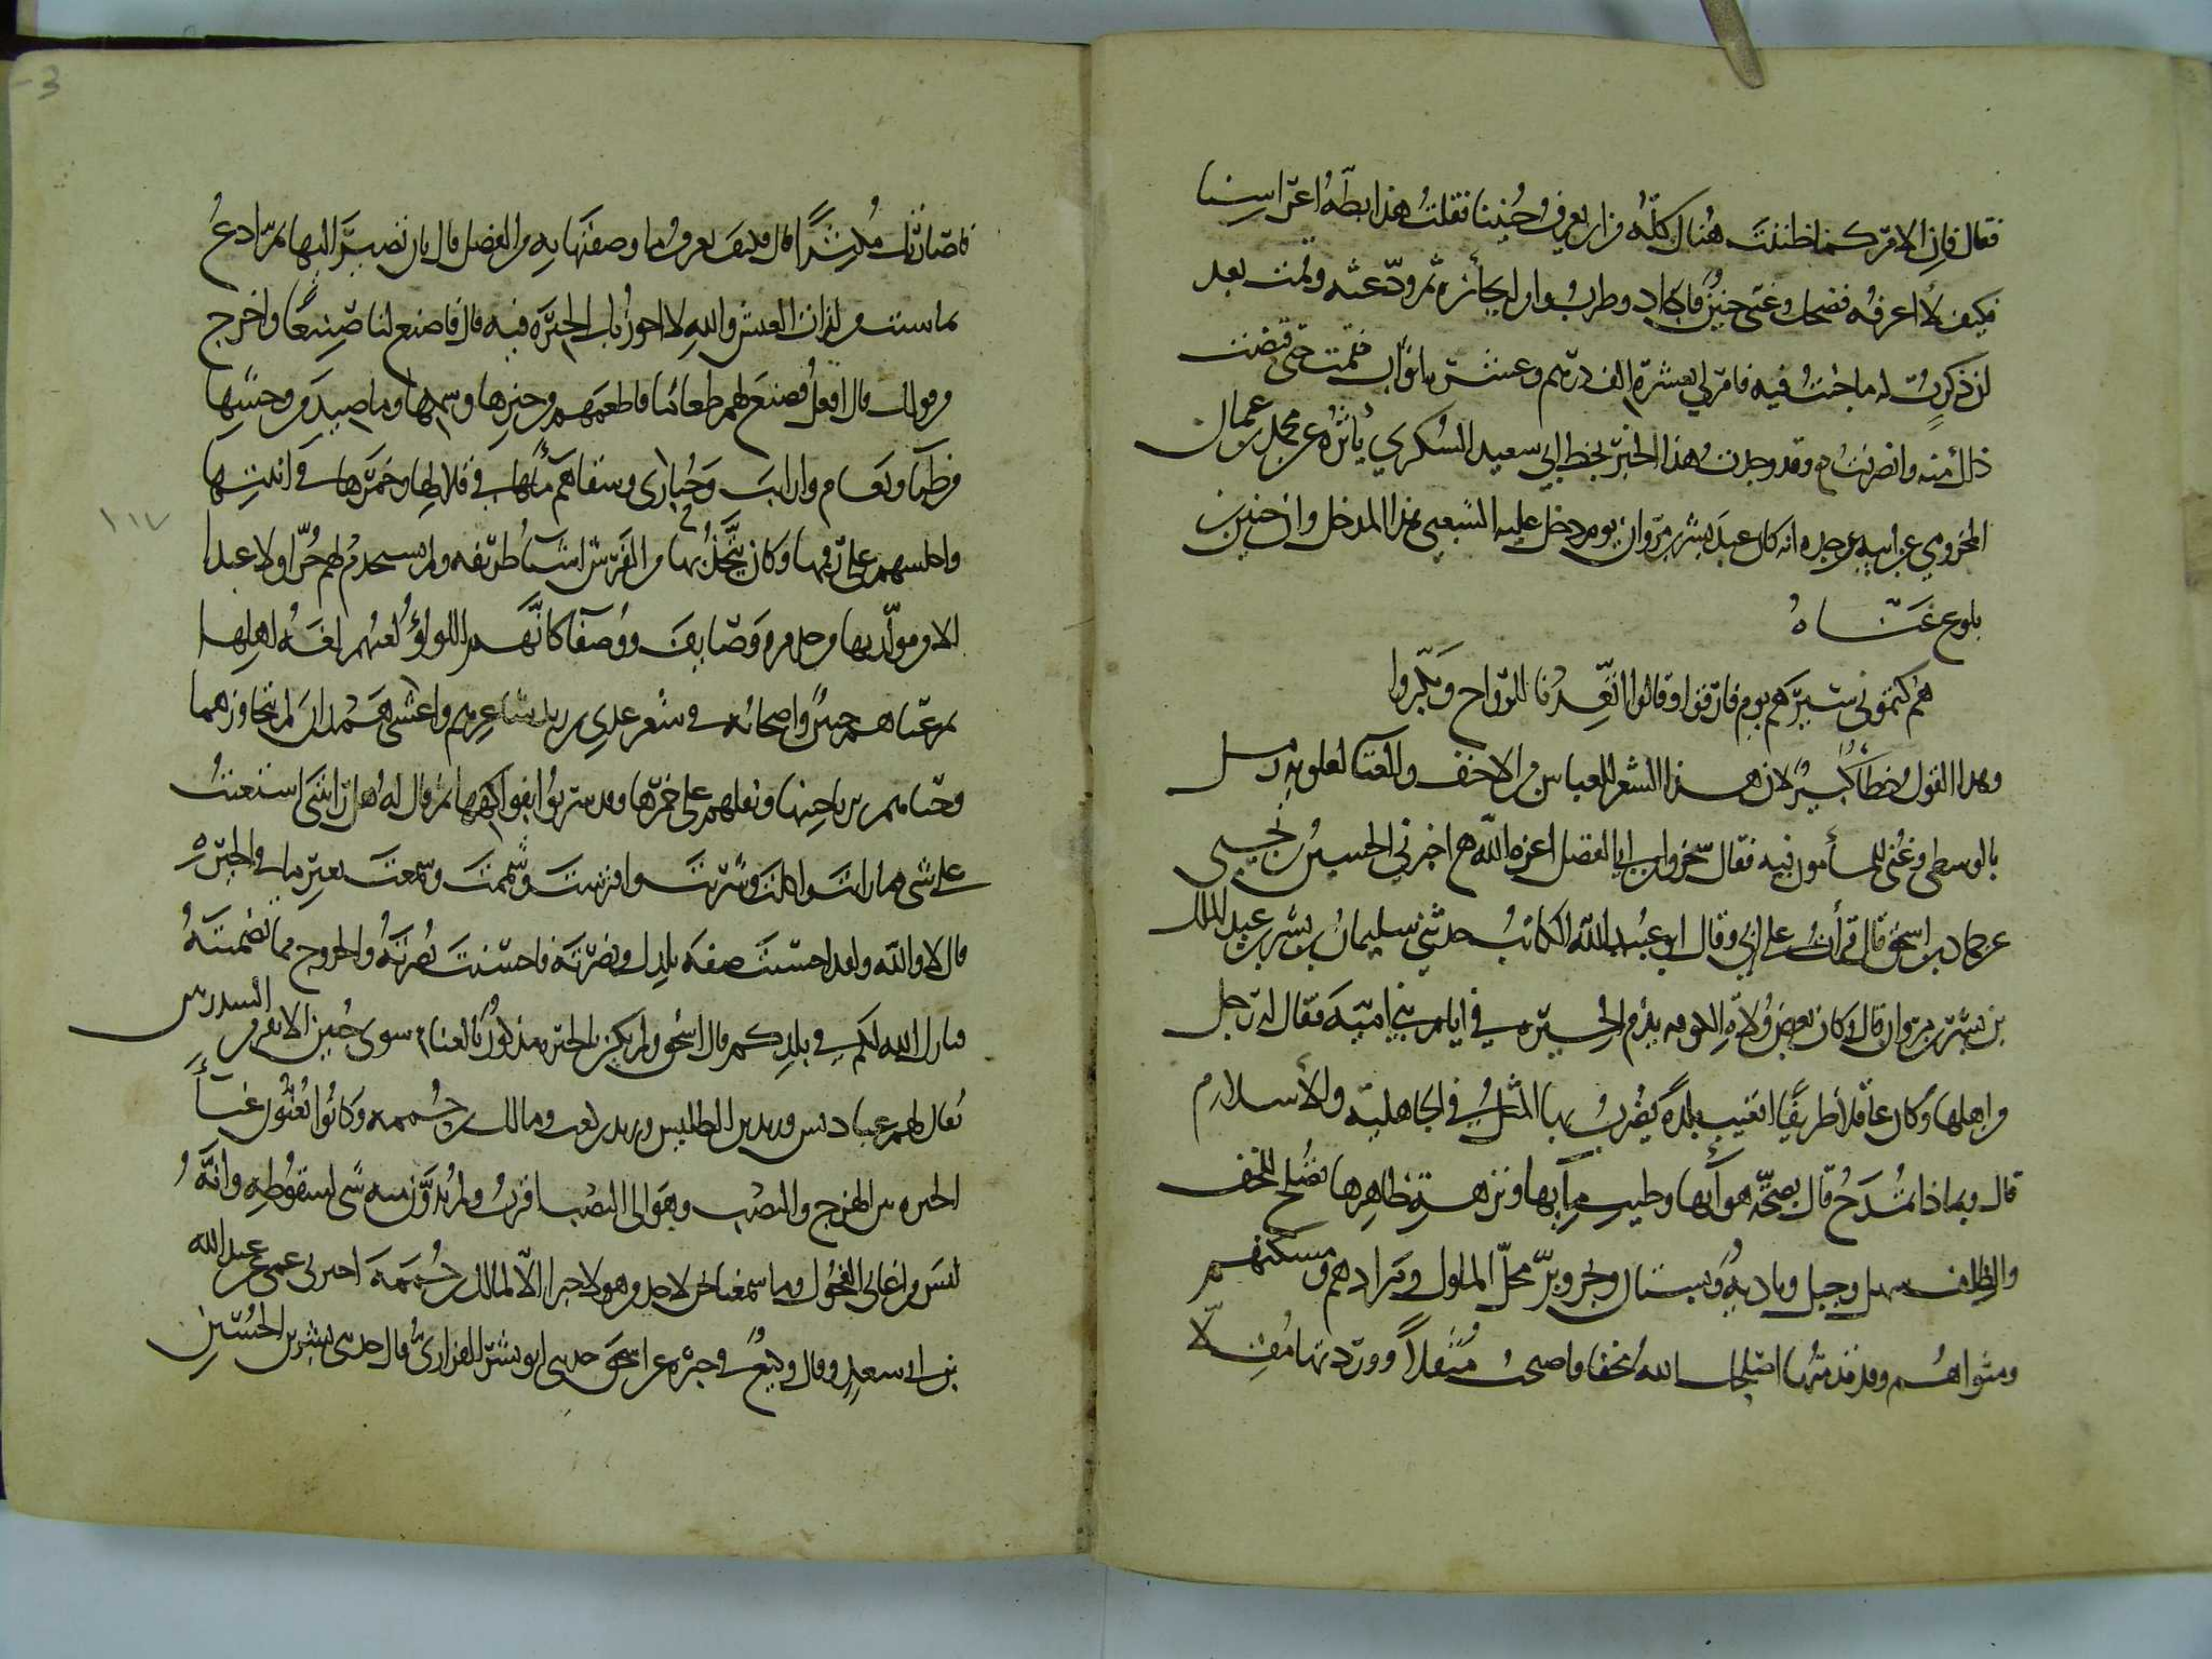 فقال فإن الامر كما ظننت هناك كله من اين تعرف حنينا فقلت هذا بطة اعراسنا
فكيف لا اعرفه فضحك وغنى حنين فاجاد وطرب وامر له بجائزة ثم ودعته وقمت بعد
ان ذكرت له ما جئت فيه فامر لي بعشرة الف درهم وعشرة اثواب فقمت حتى قبضت
ذلك منه وانصرفت وقد وجدت هذا الخبر بخط ابي سعيد السكري يأثره عن محمد بن عثمان
المخزومي عن ابيه عن جده انه كان عند بشر بن مروان يوم دخل عليه الشعبي هذا المدخل وان حنين بن
بلوع غناه
هم كتموني سيرهم يوم فارقوا وقالوا اتعدنا للرواح وبكروا
وهذا القول خطأ كبير لان هذا الشعر للعباس بن الاحنف والغنا لعلويه رمل
بالوسطى وغني للمأمون فيه فقال سخروا بابي الفضل اعزه الله اخبرني الحسين بن يحيى
عن حماد بن اسحق قال قرأت على ابي وقال ابو عبيد الله الكاتب حدثني سليمان بن بشر بن عبد الملك
بن بشر بن مروان قال وكان بعض ولاة الكوفه يذم الحيرة في ايام بني امية فقال له رجل
من اهلها وكان عاقلا ظريفا اتعيب بلدة يضرب بها المثل في الجاهلية والاسلام
قال وبماذا تمدح قال بصحة هوآئها وطيب مآئها ونزهة ظاهرها تصلح للخف
والظلف سهل وجبل وبادية وبستان وبحر وبر محل الملوك ومزارهم ومسكنهم
ومثواهم وقد قدمتها اصلحك الله مخفا فاصبحت مثقلا ووردتها مقلا
فاصارتك مكثرا قال فكيف نعرف ما وصفتها به من الفضل قال بان تصير اليها ثم ادع
بما شئت من لذات العيش والله لا اجوز بك الحيرة فيه قال فاصنع لنا صنيعا واخرج
من قولك قال افعل فصنع لهم طعاما فاطعمهم من خبزها وسمكها وما صيد من وحشها
من ظبآ ونعام وارانب وحبارى وسقاهم مآءها في قلالها وخمرها في آنيتها
واجلسهم على رقمها وكان يتخذ بها من الفرش اشيآ ظريفه ولم يستخدم لهم حرا ولا عبدا
الا من مولديها من خدم ووصايف ووصفآ كانهم اللؤلؤ لغتهم لغة اهلها
ثم غناهم حنين واصحابه في شعر عدي بن زيد شاعرهم واعشى همدان لم يتجاوزهما
وحياهم برياحينها ونقلهم على خمرها وقد شربوا بفواكهها ثم قال له هل رايتني استعنت
على شي مما رايت واكلت وشربت وافترشت وشممت وسمعت بغير ما في الحيرة
قال لا والله ولقد احسنت صفة بلدك ونصرته فاحسنت نصرته والخروج مما تضمنته
فبارك الله لكم في بلدكم قال اسحق ولم يكن بالحيره مذكور بالغنا سوى حنين الا نفر من السدريين
يقال لهم عبادس وزيد بن الطليس وزيد بن كعب ومالك بن حممه وكانوا يغنون غنآ
الحيره بين الهزج والنصب وهو الى النصب اقرب ولم يدون منه شي لسقوطه وانه
ليس من اغاني الفحول وما سمعنا نحن لاحد من هولا خبرا الا لمالك بن حممة اخبرني عمي عن عبد الله
بن ابي سعد وقال وكيع في خبره عن اسحق حدثني ابو بشر الفزاري قال حدثني بشر بن الحسين
١١٧
3